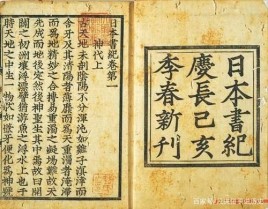 日本書紀
慶長己亥
季春新刊
日本書紀卷第一
神代上
古天地未剖陰陽不分渾沌如鷄子溟涬而
含牙及其清陽者薄靡而爲天重濁者淹滯
而爲地精妙之合搏易重濁之凝場難故天
先成而地後定然後神聖生其中焉故曰開
闢之初洲壤浮漂譬猶游魚之浮水上也于
時天地之中生一物狀如葦牙便化爲神號